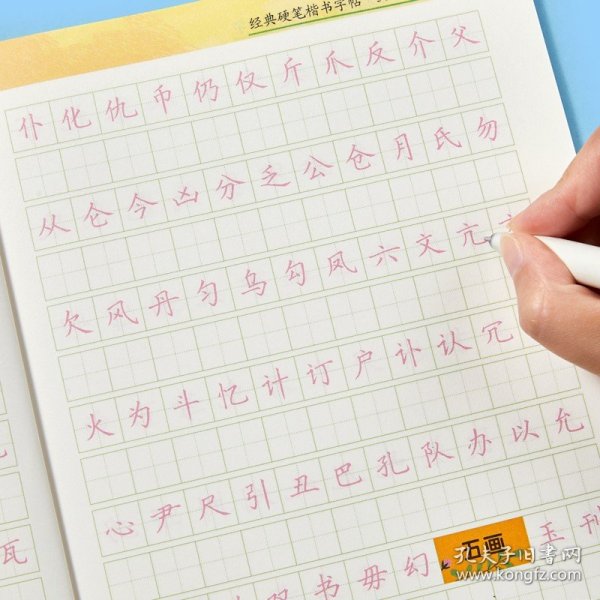 经典硬笔楷书字帖
仆化仇币仍仅斤爪反介父
从仑今凶分乏公仓月氏勿
欠风丹匀乌勾凤六文亢
火为斗忆计订户讣认冗
心尹尺引丑巴孔队办以允
双书毋幻 玉刊
瓦
石画
孔夫子旧书网
www.kongfz.com